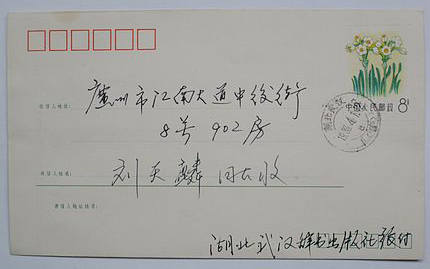 中国人民邮政 8分
收信人地址:
广州市江南大道中後街
8号902房
收信人姓名:
刘天麟 同志收
寄信人地址姓名:
湖北武汉辞书出版社